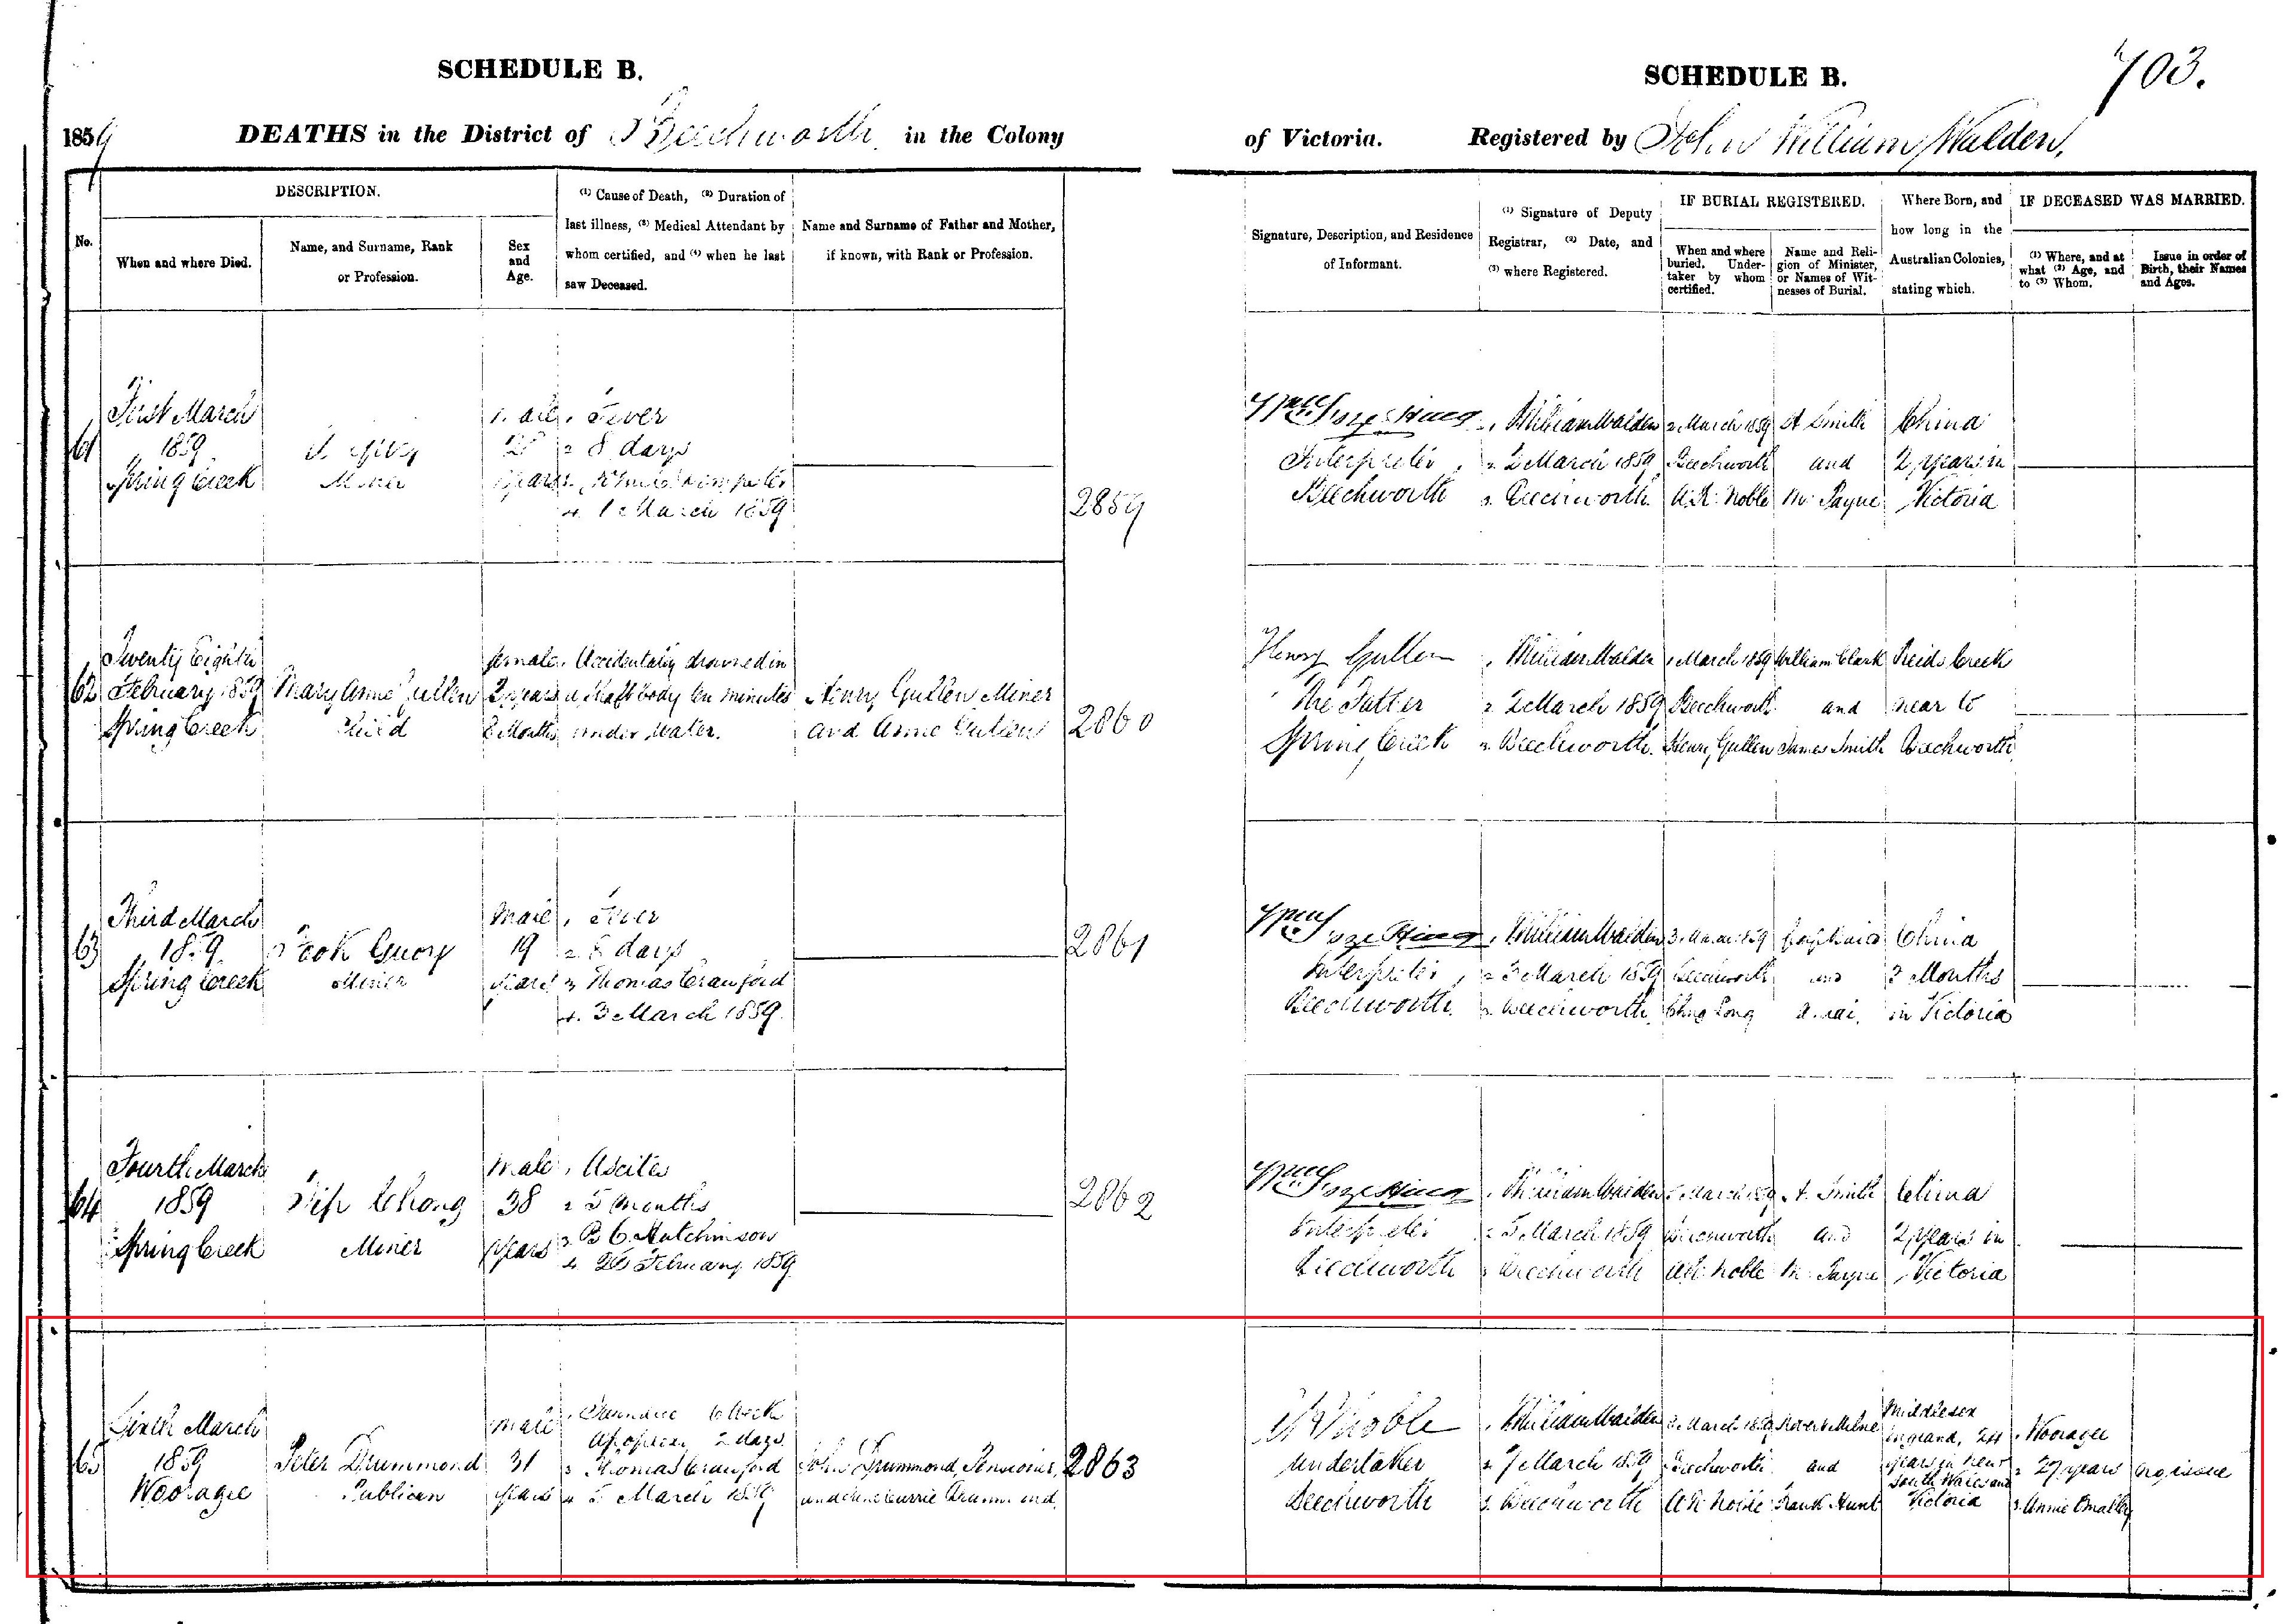 SCHEDULE B.
1859 DEATHS in the District of Beechworth in the Colony
No.
DESCRIPTION.
When and where Died.
Name, and Surname, Rank
or Profession.
Sex
and
Age.
(1) Cause of Death, (2) Duration of
last illness, (3) Medical Attendant by
whom certified, and (4) when he last
saw Deceased.
Name and Surname of Father and Mother,
if known, with Rank or Profession.
SCHEDULE B.
703.
of Victoria. Registered by John William Walden,
Signature, Description, and Residence
of Informant.
(1) Signature of Deputy
Registrar, (2) Date, and
(3) where Registered.
IF BURIAL REGISTERED.
When and where
buried. Under-
taker by whom
certified.
Name and Reli-
gion of Minister,
or Names of Wit-
nesses of Burial.
Where Born, and
how long in the
Australian Colonies,
stating which.
IF DECEASED WAS MARRIED.
(1) Where, and at
what (2) Age, and
to (3) Whom.
Issue in order of
Birth, their Names
and Ages.
61
First March
1859
Spring Creek
Miner
Fever
2 8 days
4. 1 March 1859
2859
Interpreter
Beechworth
1. William Walden
2. 2 March 1859
3. Beechworth
2 March 1859
Beechworth
A. R. Noble
A Smith
and
M. Payne
China
2 years in
Victoria
62
Twenty Eighth
February 1859
Spring Creek
Mary Anne Gullen
Child
female
2 years
Months
Accidentally drowned in
a shaft body ten minutes
under water.
Henry Gullen Miner
and Anne Gullen
2860
Henry Gullen
The Father
Spring Creek
1. William Walden
2. 2 March 1859
3. Beechworth
1 March 1859
Beechworth
Henry Gullen
William Clark
and
James Smith
Reids Creek
near to
Beechworth
63
Third March
1859
Spring Creek
Miner
Male
19
years
1. Fever
2. 8 days
3. Thomas Crawford
4. 3 March 1859
2861
Interpreter
Beechworth
1. William Walden
2. 3 March 1859
3. Beechworth
3 March 1859
Beechworth
and
China
Months
in Victoria
64
Fourth March
1859
Spring Creek
Chong
Miner
Male
38
years
1. Ascites
2 5 Months
3. B C Hutchinson
4. 26 February 1859
2862
Interpreter
Beechworth
1. William Walden
2. 5 March 1859
3. Beechworth
March 1859
Beechworth
A R Noble
A. Smith
and
M. Payne
China
2 years in
Victoria
65
Sixth March
1859
Wooragee
Peter Drummond
Publican
Male
31
years
Apoplexy 2 days
3 Thomas Crawford
4 5 March 1859
John Drummond, Pensioner,
and Jane Currie Drummond.
2863
A R Noble
Undertaker
Beechworth
1. William Walden
2. 7 March 1859
3. Beechworth
March 1859
Beechworth
A R Noble
Robert Milne
and
Frank Hunt
Middlesex
England, 24
years in New
South Wales and
Victoria
1. Wooragee
2. 27 years
3. Annie Omalley
No issue